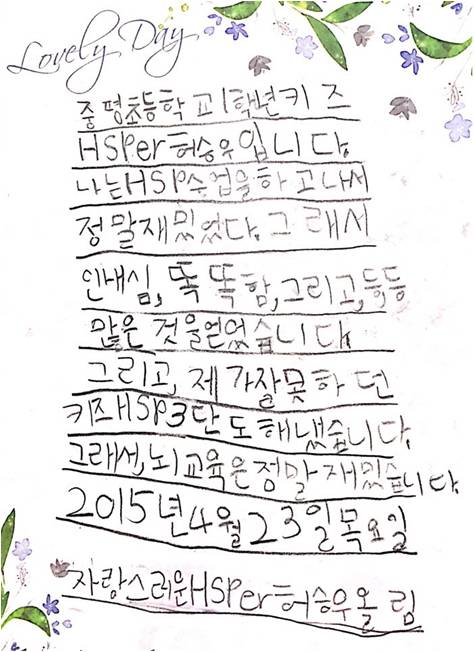 Lovely Day
중평초등학교 1학년 키즈
HSPer 허승우입니다.
나는HSP수업을하고나서
정말재밌었다.그래서
인내심, 똑똑함,그리고,등등
많은 것을얻었습니다
그리고, 제가잘못하던
키즈HSP3단도해냈습니다.
그래서,뇌교육은정말재밌습니다.
2015년4월23일목요일
자랑스러운HSPer허승우올림